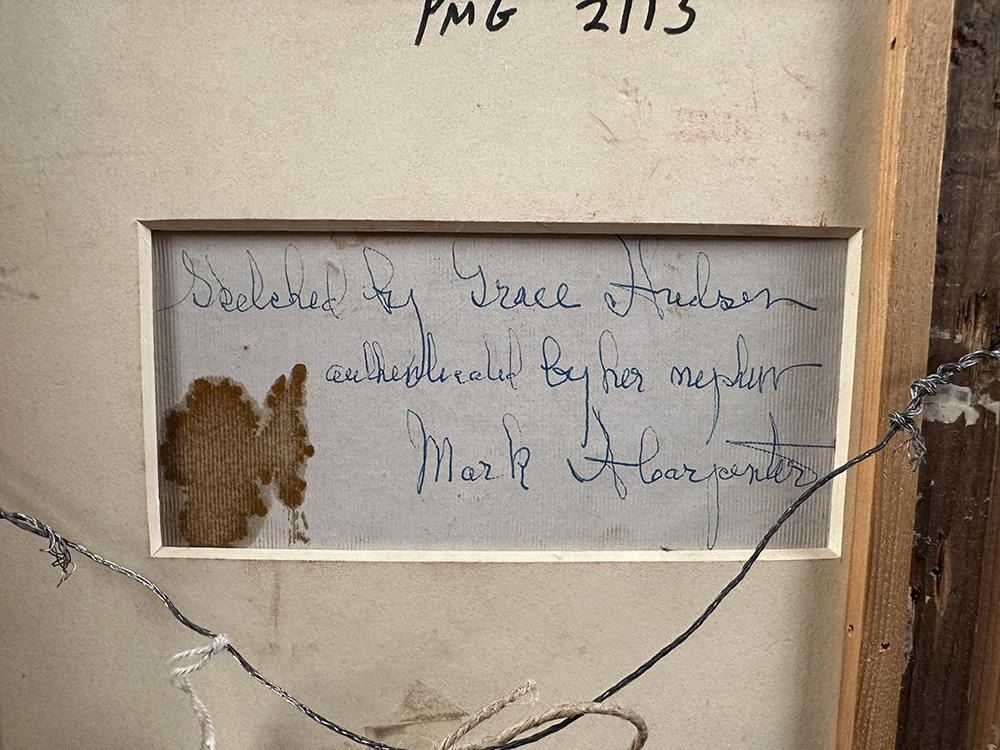 PMG 2113
Sketched by Grace Hudson
authenticated by her nephew
Mark A Carpenter